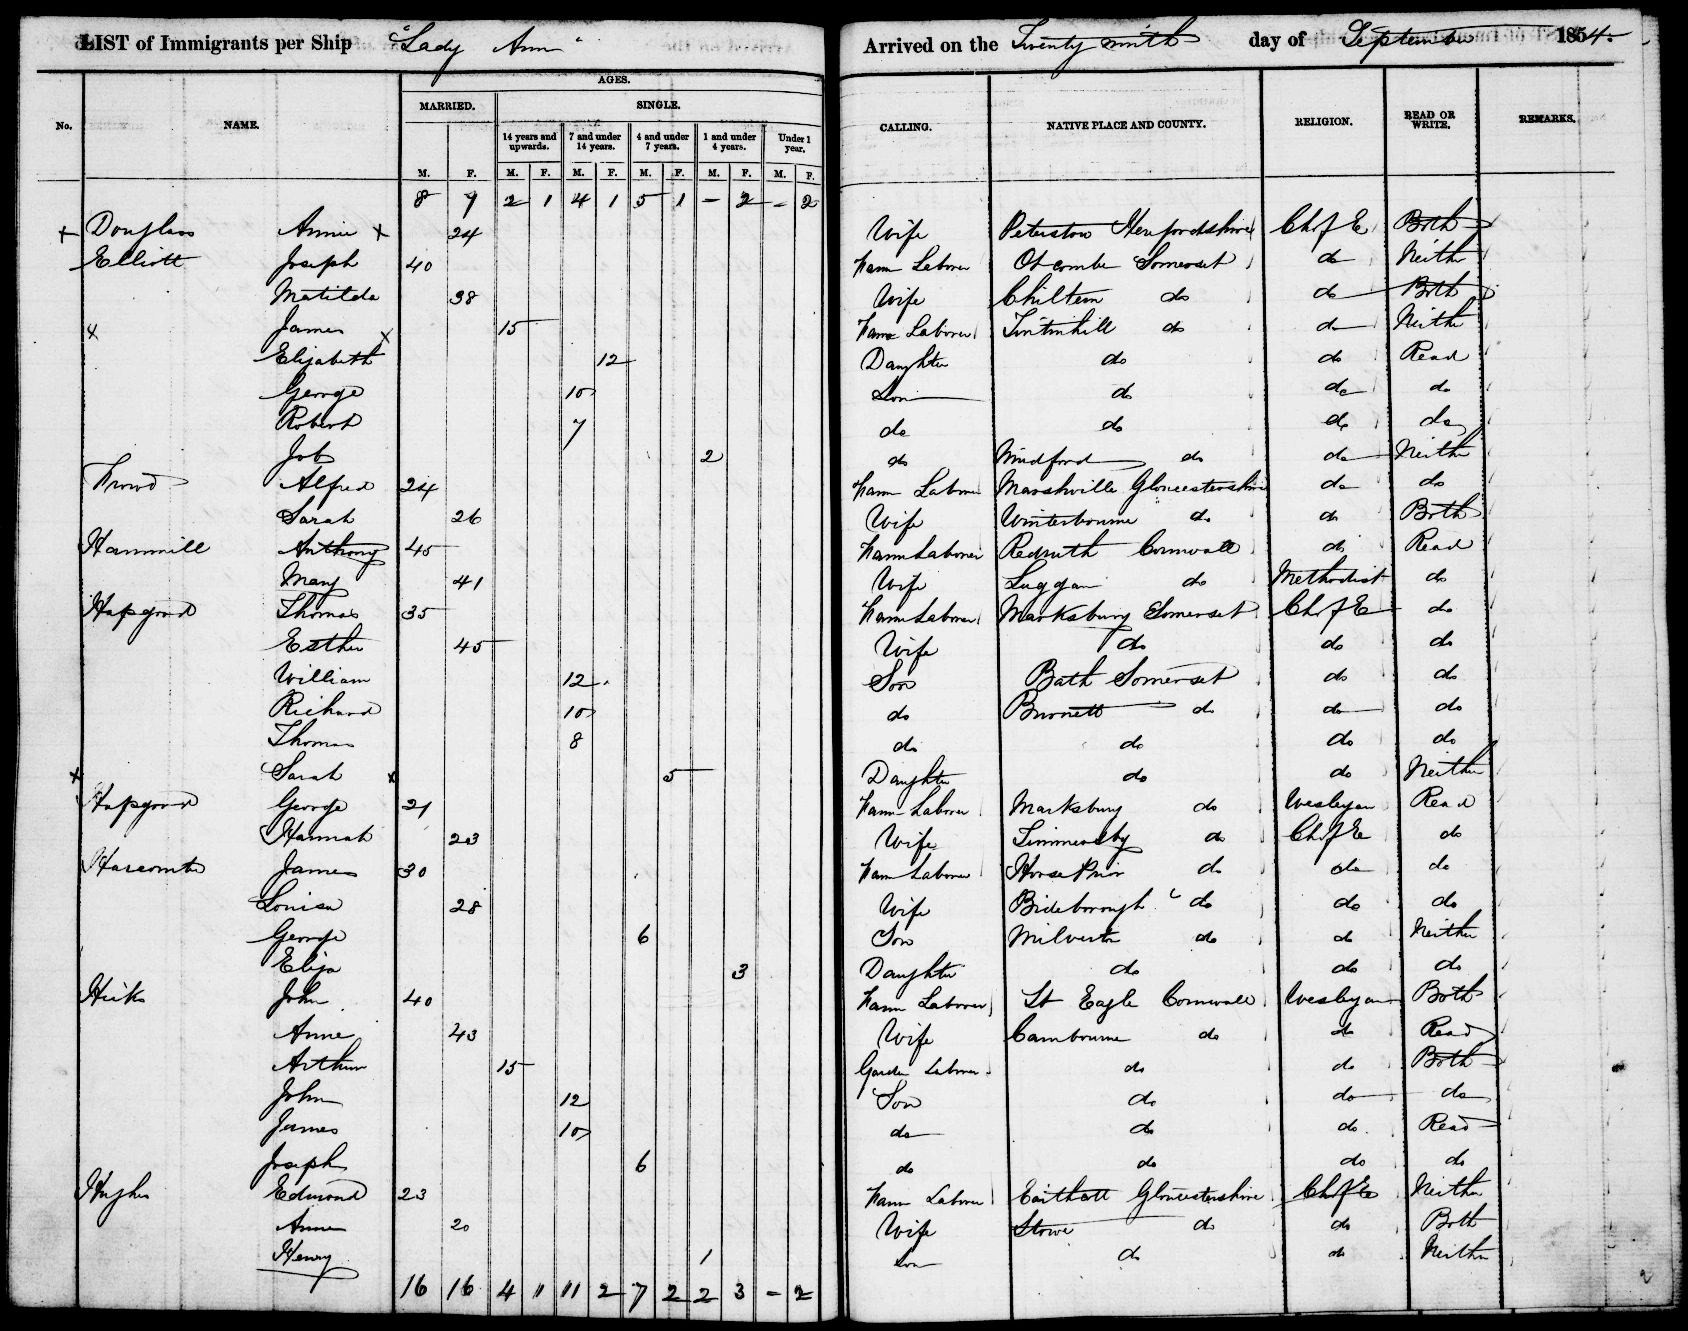 LIST of Immigrants per Ship "Lady Ann" Arrived on the Twenty ninth day of September 1854.
AGES.
MARRIED. SINGLE.
No. NAME. 14 years and upwards. 7 and under 14 years. 4 and under 7 years. 1 and under 4 years. Under 1 year. CALLING. NATIVE PLACE AND COUNTY. RELIGION. READ OR WRITE. REMARKS.
M. F. M. F. M. F. M. F. M. F. M. F.
8 9 2 1 4 1 5 1 - 2 - 2
x Douglass Annie x 24 Wife Peterstow Herefordshire Ch of E Both
Elliott Joseph 40 Farm Laborer Somerset do Neither
Matilda 38 Wife Chiltern do do Both
x James x 15 Farm Laborer Tintinhill do do Neither
Elizabeth 12 Daughter do do Read
George 10 Son do do do
Robert 7 do do do do
Job 2 do Mudford do do Neither
Alfred 24 Farm Laborer Marshville Gloucestershire do do
Sarah 26 Wife Winterbourne do do Both
Hammill Anthony 45 Farm Laborer Redruth Cornwall do Read
Mary 41 Wife Luggan do Methodist do
Hapgood Thomas 35 Farm Laborer Marksbury Somerset Ch of E do
Esther 45 Wife do do do
William 12 Son Bath Somerset do do
Richard 10 do Burnett do do do
Thomas 8 do do do do
x Sarah x 5 Daughter do do Neither
Hapgood George 21 Farm Laborer Marksbury do Wesleyan Read
Hannah 23 Wife do Ch of E do
Harcombe James 30 Farm Laborer do do do
Louisa 28 Wife do do do
George 6 Son Milverton do do Neither
Eliza 3 Daughter do do do
Hicks John 40 Farm Laborer St Eagle Cornwall Wesleyan Both
Anne 43 Wife Cambourne do do Read
Arthur 15 Garden Laborer do do Both
John 12 Son do do do
James 10 do do do Read
Joseph 6 do do do do
Hughes Edmond 23 Farm Laborer Gloucestershire Ch of E Neither
Anne 20 Wife Stowe do do Both
Henry 1 Son do do Neither
16 16 4 " 11 2 7 2 2 3 - 2